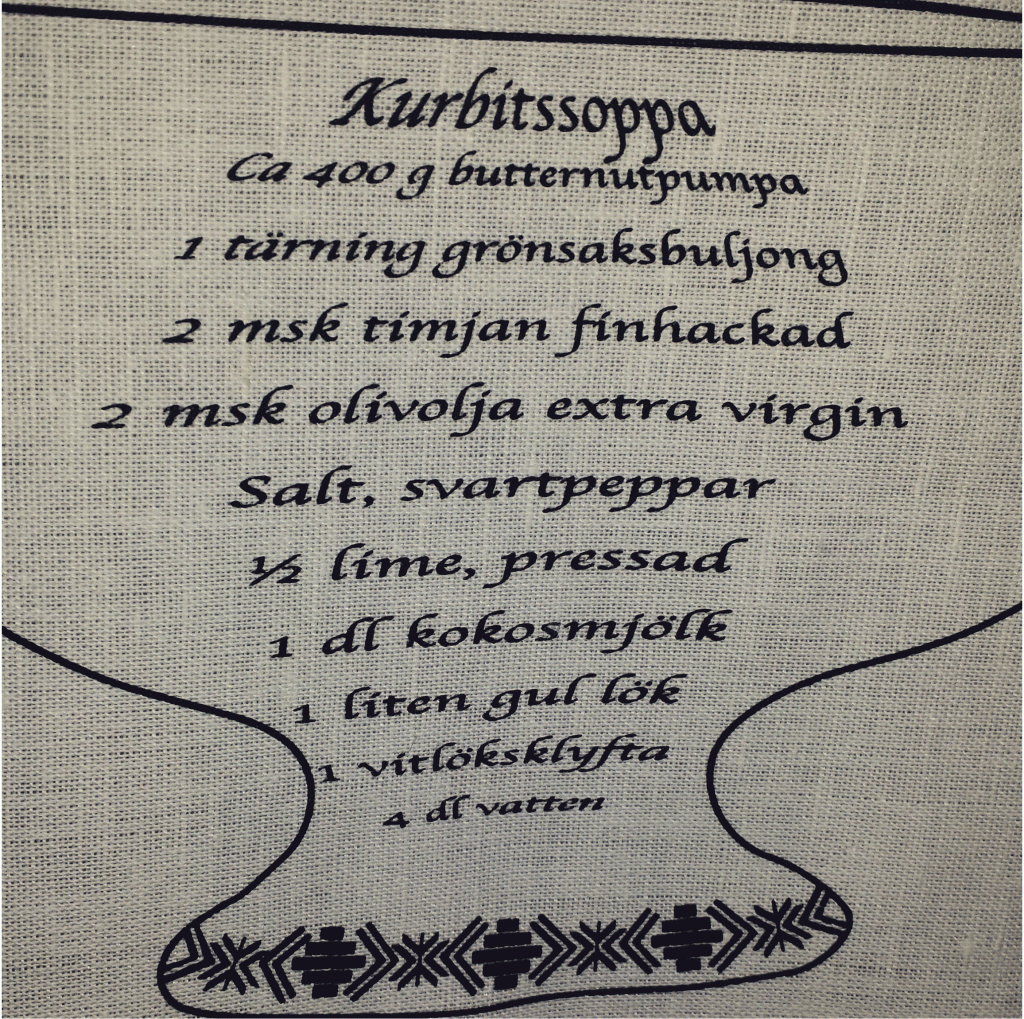 Kurbitssoppa
Ca 400 g butternutpumpa
1 tärning grönsaksbuljong
2 msk timjan finhackad
2 msk olivolja extra virgin
Salt, svartpeppar
½ lime, pressad
1 dl kokosmjölk
1 liten gul lök
1 vitlöksklyfta
4 dl vatten